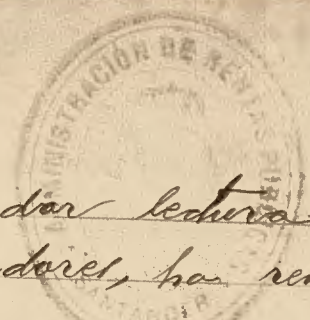 ADMINISTRACIÓN DE RENTAS
dar lectura
dores, ha ren
SANTANDER